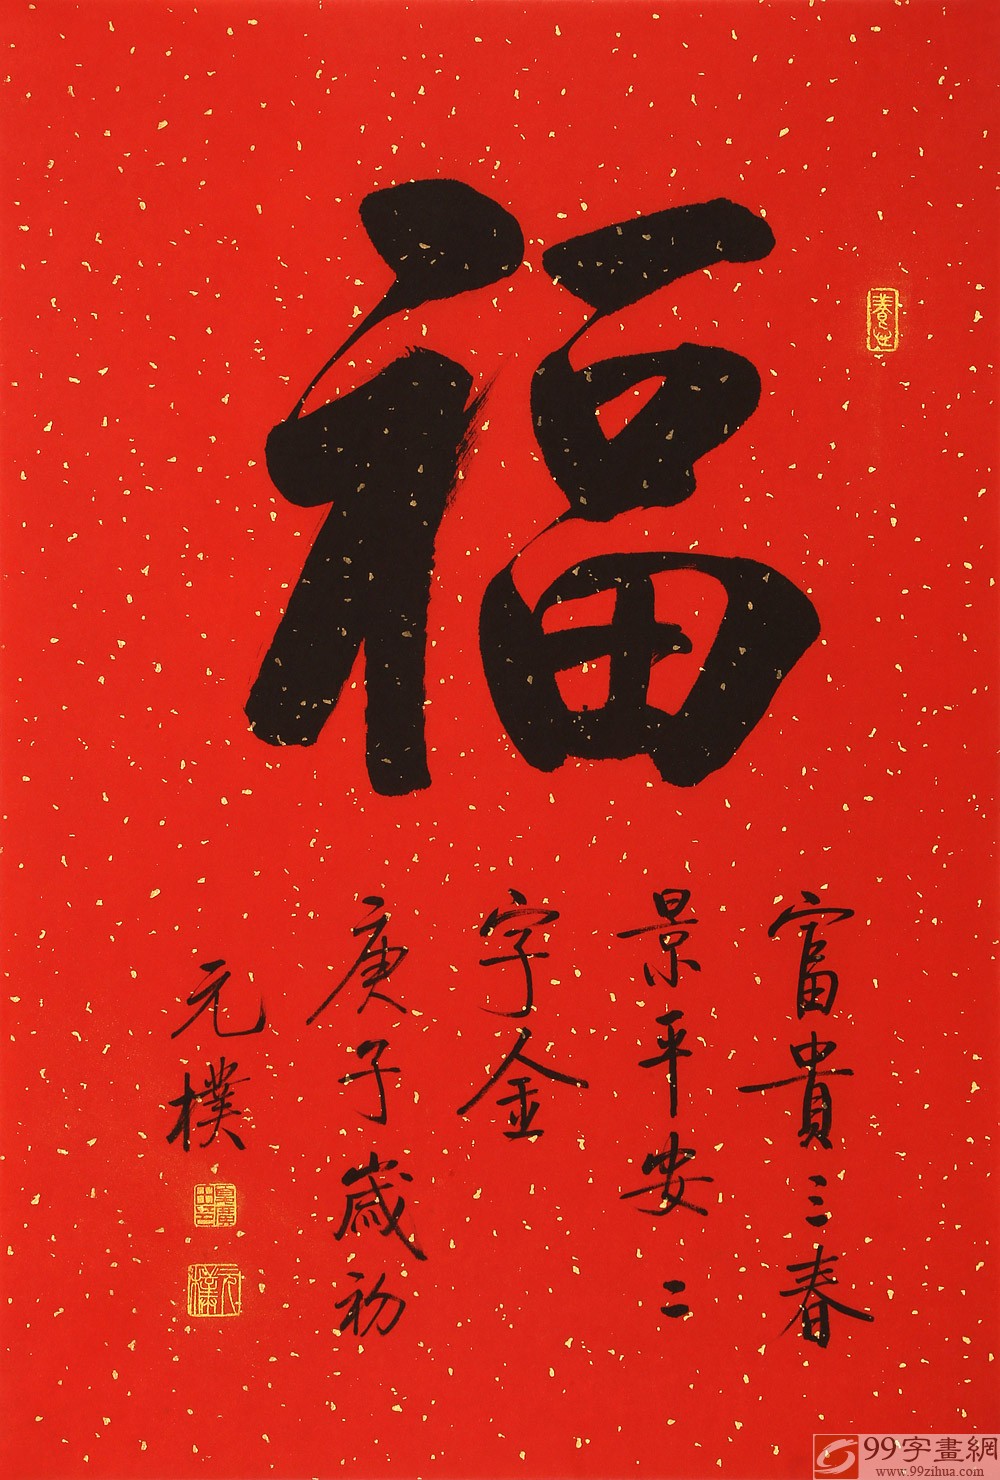 福
養生
富貴三春
景平安二
字金
庚子歲初
元樸
元樸
99字畫網
www.99zihua.com